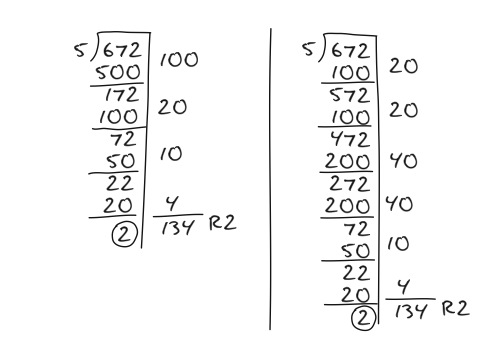 5 672
500 100
172
100 20
72
50 10
22
20 4
2 134 R2
5 672
100 20
572
100 20
472
200 40
272
200 40
72
50 10
22
20 4
2 134 R2